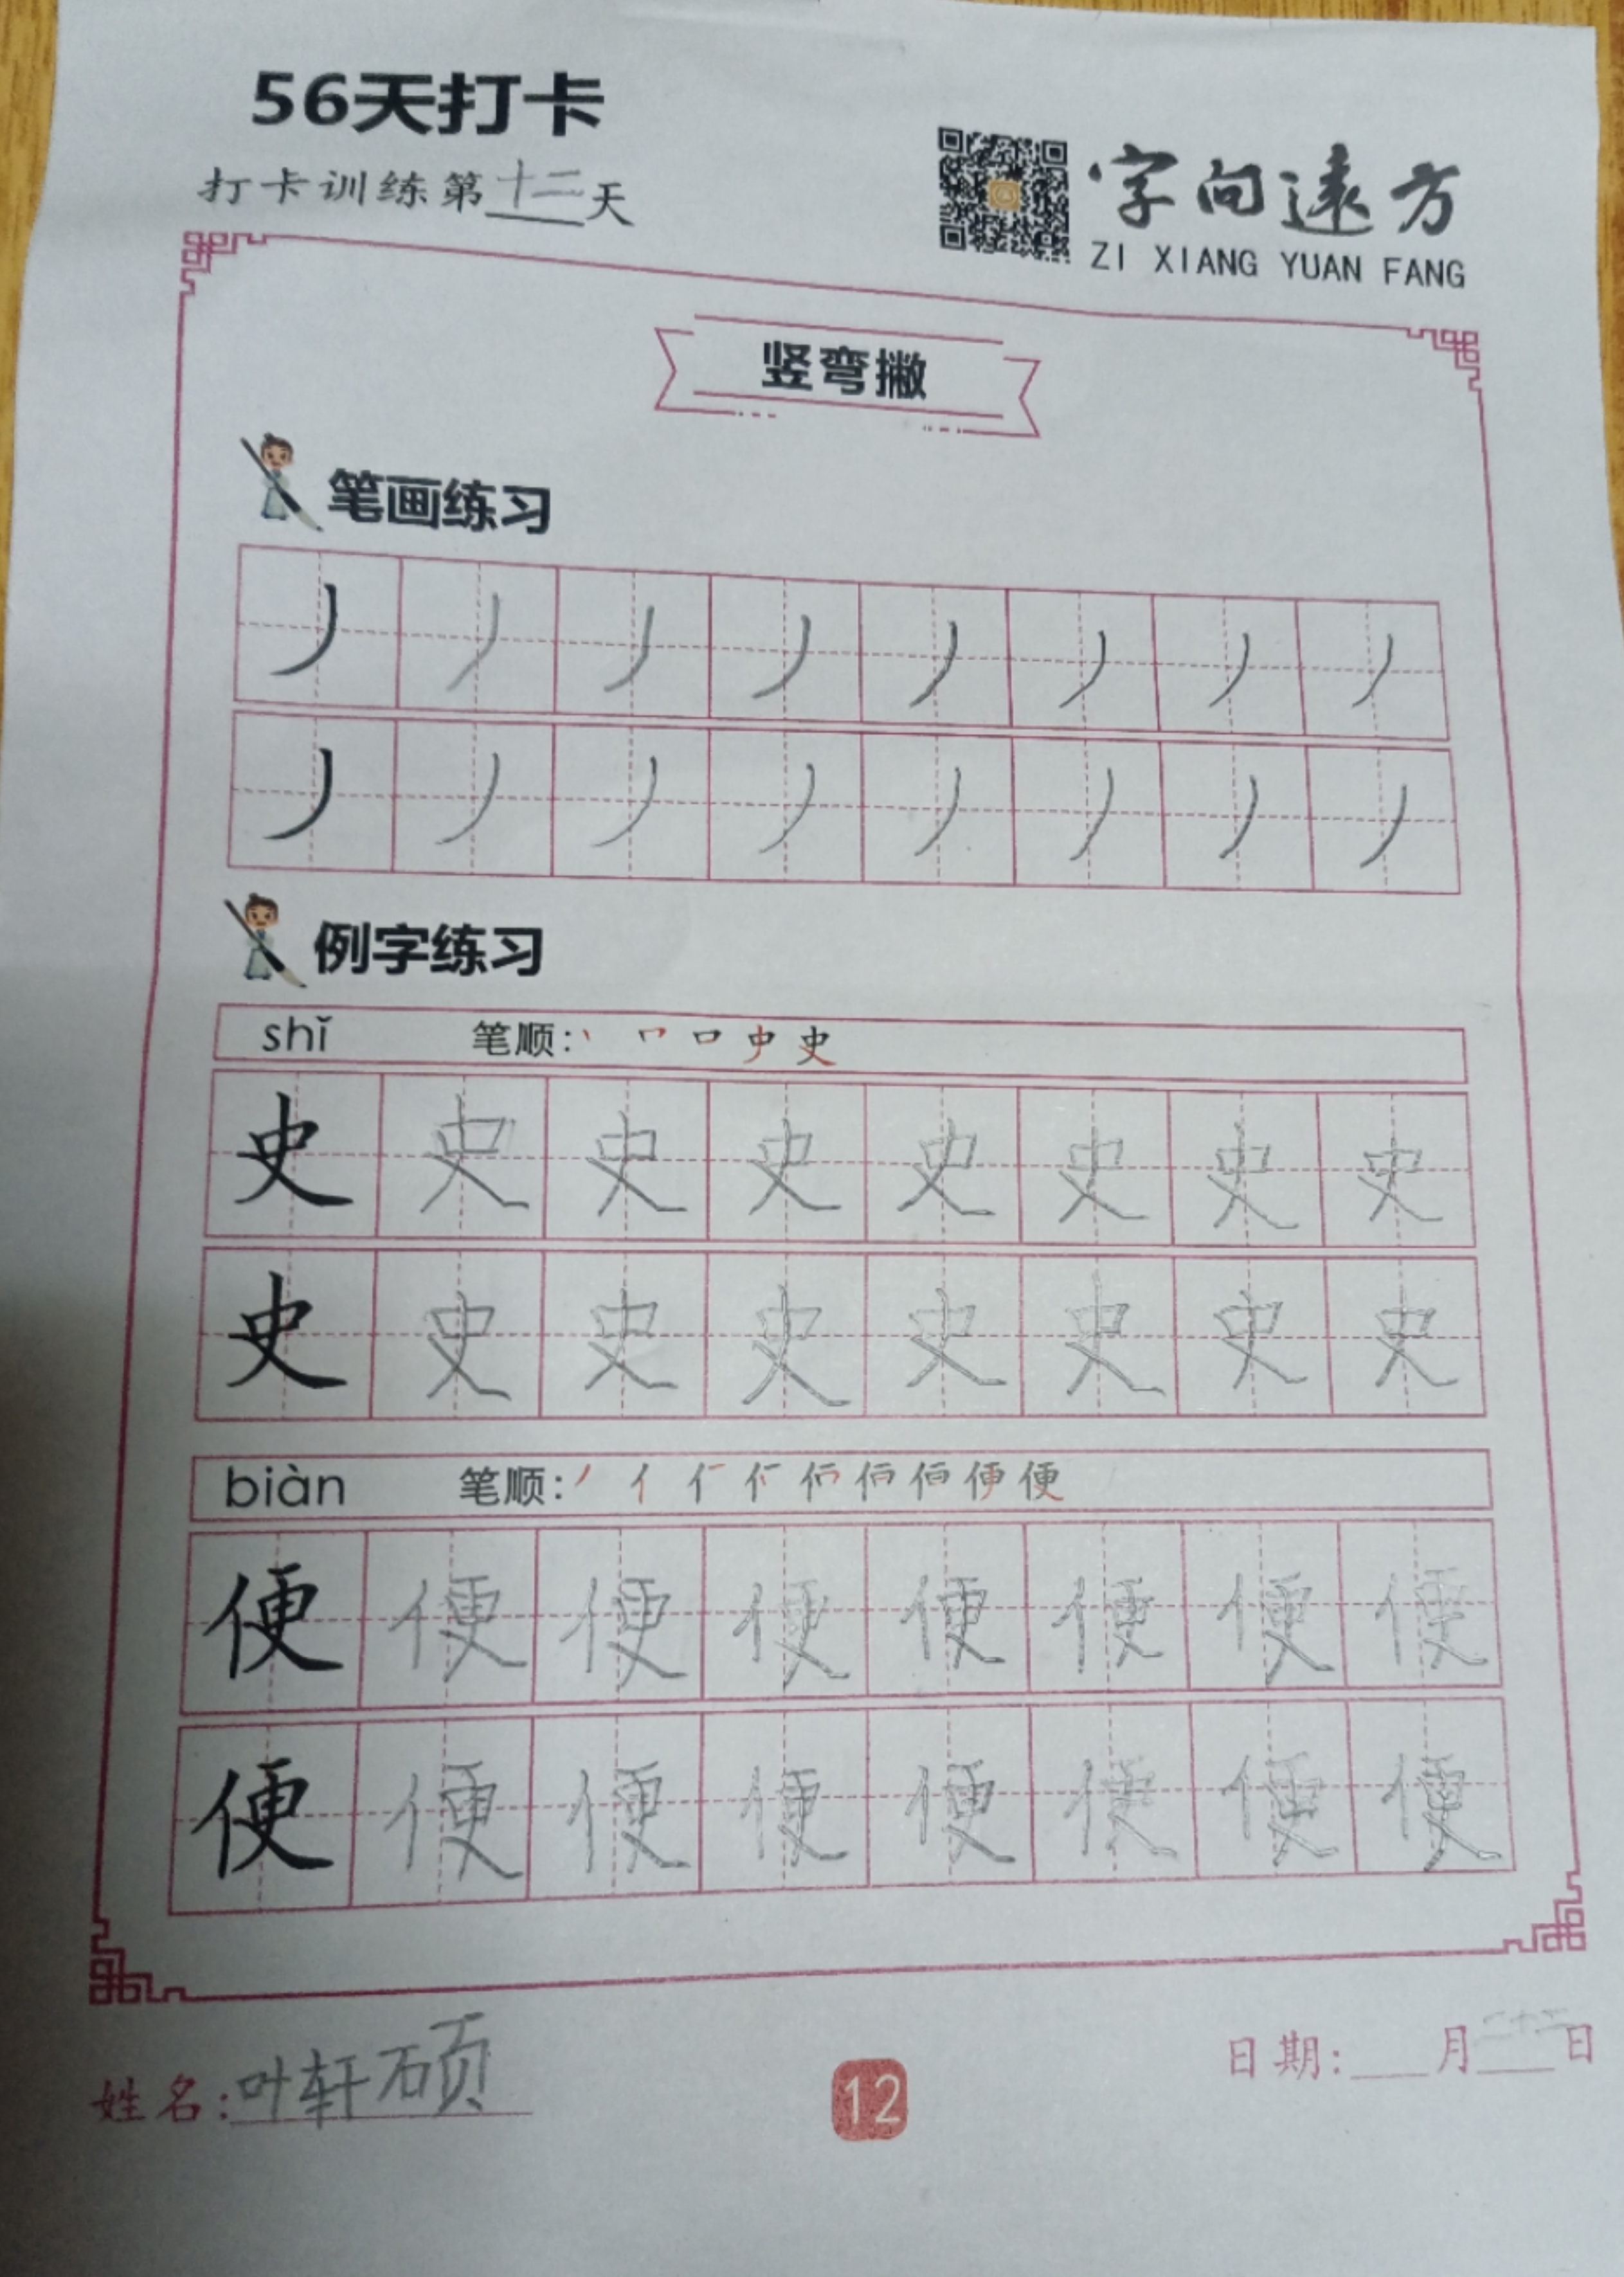 56天打卡
打卡训练第十二天
字向遠方
ZI XIANG YUAN FANG
竖弯撇
笔画练习
丿丿丿丿丿丿丿丿
丿丿丿丿丿丿丿丿
例字练习
shǐ 笔顺: 史
史史史史史史史史
史史史史史史史史
biàn 笔顺: 便
便便便便便便便便
便便便便便便便便
姓名:叶轩硕
12
日期:__月二十二日